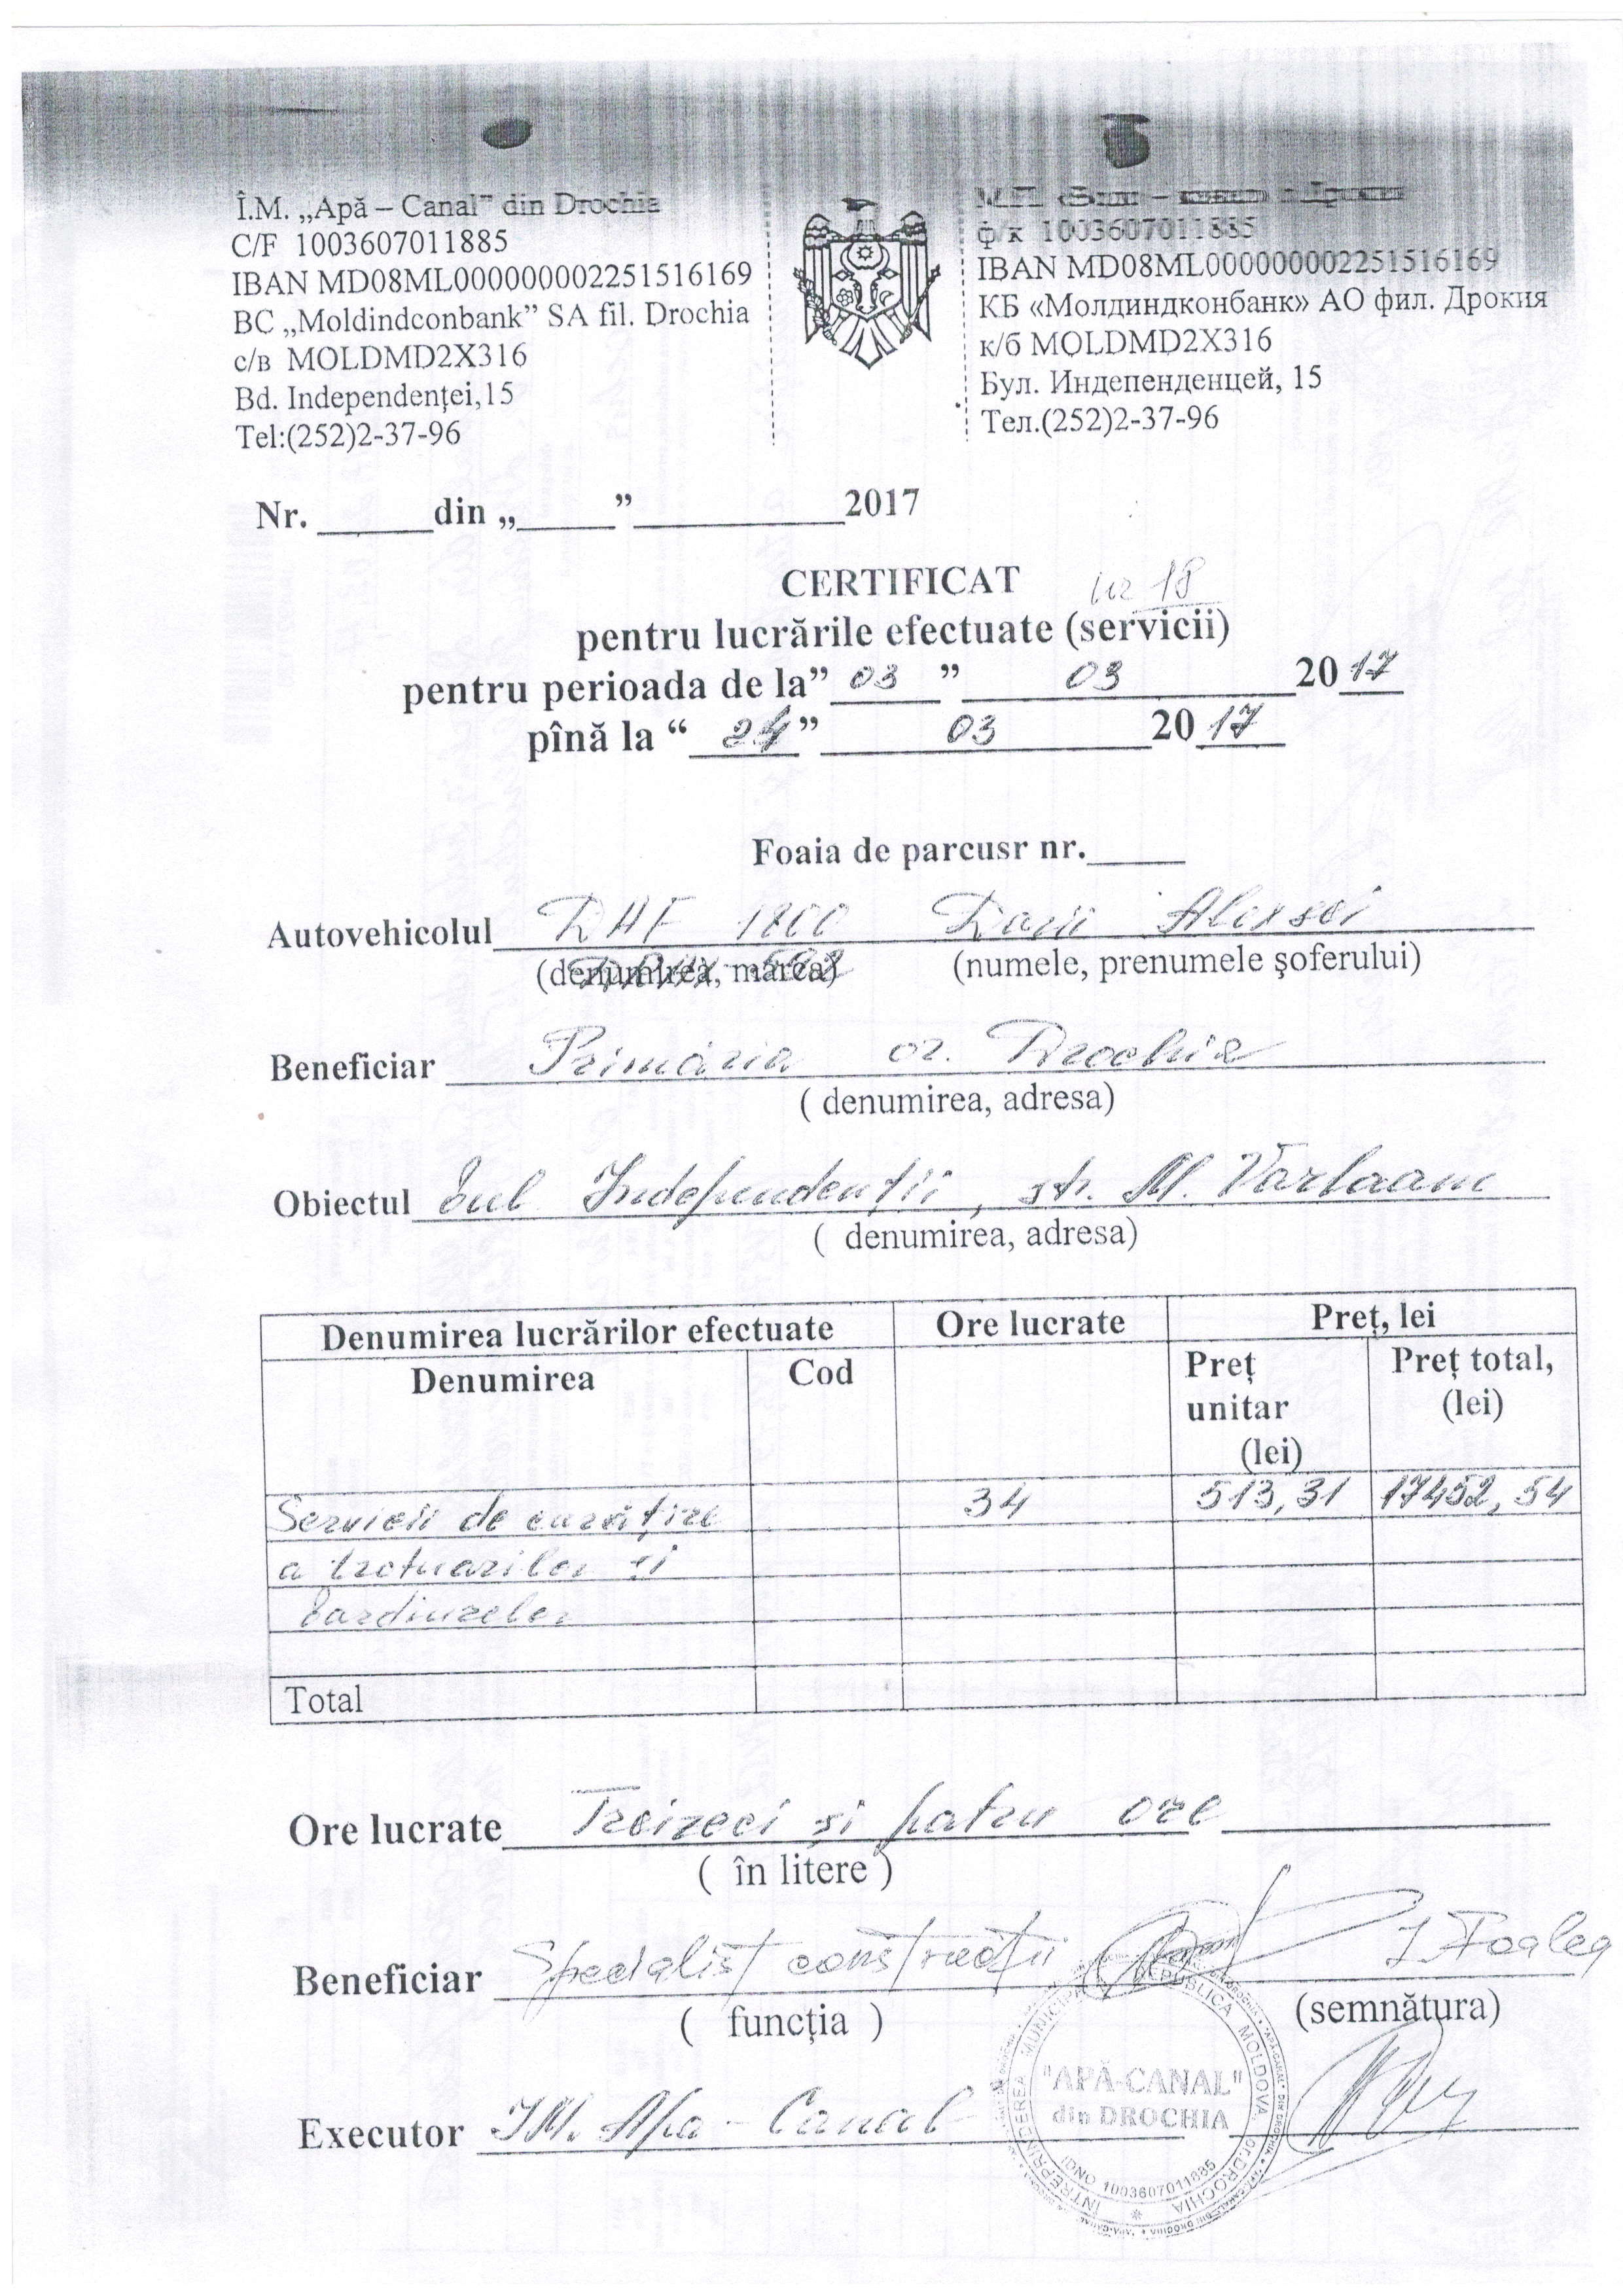 Î.M. „Apă – Canal” din Drochia
C/F 1003607011885
IBAN MD08ML000000002251516169
BC „Moldindconbank” SA fil. Drochia
c/в MOLDMD2X316
Bd. Independenţei,15
Tel:(252)2-37-96
ф/к 1003607011885
IBAN MD08ML000000002251516169
КБ «Молдиндконбанк» АО фил. Дрокия
к/б MOLDMD2X316
Бул. Индепенденцей, 15
Тел.(252)2-37-96
Nr. ______din „_____”___________2017
CERTIFICAT nr 18
pentru lucrările efectuate (servicii)
pentru perioada de la” 03 ” 03 2017
pînă la “ 24” 03 2017
Foaia de parcusr nr._____
Autovehicolul DAF 1800 Raii Alexsei
(denumirea, marca) (numele, prenumele şoferului)
Beneficiar Primăria or. Drochia
( denumirea, adresa)
Obiectul bul Independenţii, str. M. Varlaam
( denumirea, adresa)
Denumirea lucrărilor efectuate Ore lucrate Preţ, lei
Denumirea Cod Preţ unitar (lei) Preţ total, (lei)
Servicii de curăţire 34 513,31 17452,54
a trotuarilor şi
bordiurelor
Total
Ore lucrate Treizeci şi patru ore
( în litere )
Beneficiar Specialist construcţii I. Foalea
( funcţia ) (semnătura)
Executor IM. Apa-Canal
ÎNTREPRINDEREA MUNICIPALĂ
REPUBLICA MOLDOVA or.DROCHIA
"APĂ-CANAL"
din DROCHIA
IDNO 1003607011885